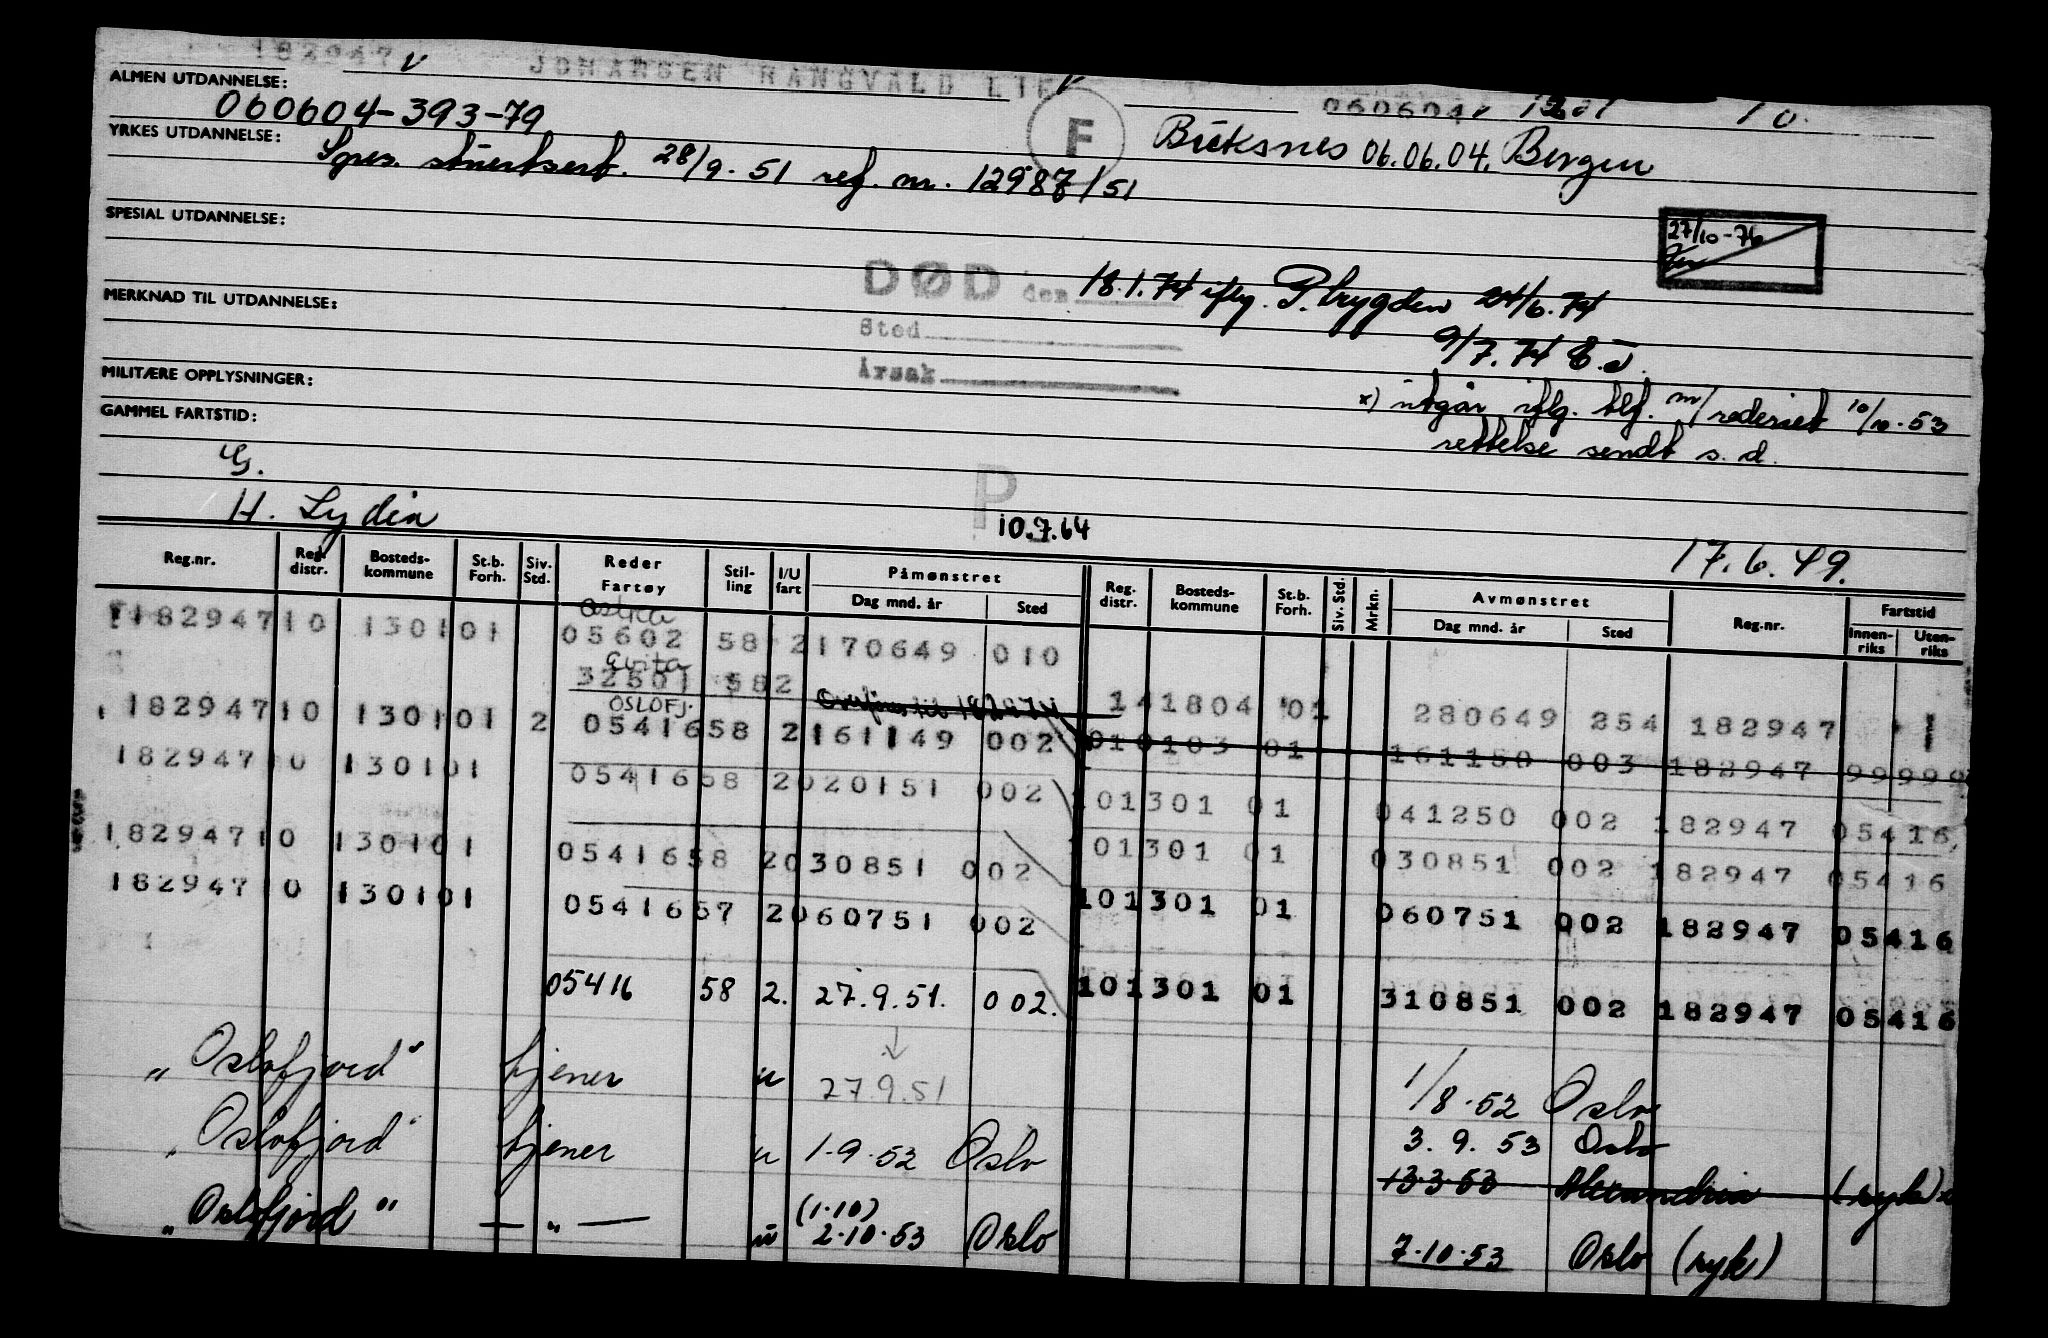 182947 v JOHANSEN RANGVALD LIE v 060604
ALMEN UTDANNELSE:
060604-393-79
F
Buksnes 06.06.04. Bergen
YRKES UTDANNELSE:
28/9.51 reg. nr. 12987/51
SPESIAL UTDANNELSE:
27/10-76
DØD den 18.1.74 iflg. P. trygden 24/6.74
MERKNAD TIL UTDANNELSE:
Sted
9/7.74
Årsak
MILITÆRE OPPLYSNINGER:
x) utgår iflg. tlf. m/rederiet 10/10.53
GAMMEL FARTSTID:
rettelse sendt s.d.
G.
P
H. Lydia
10.7.64
17.6.49.
Reg.nr. Reg. distr. Bosteds-kommune St.b. Forh. Siv. Std. Reder Fartøy Stil-ling I/U fart Påmønstret Dag mnd. år Sted Reg. distr. Bosteds-kommune St.b. Forh. Siv. Std. Mrkn. Avmønstret Dag mnd. år Sted Reg.nr. Fartstid Innen-riks Uten-riks
182947 10 1301 01 05602 58 2 170649 010
32501 58 2 Overføres til 182947 1 41804 01 280649 254 182947
OSLOFJ.
182947 10 1301 01 2 05416 58 2 161149 002 010103 01 161150 003 182947 99999
182947 10 1301 01 05416 58 2 020151 002 101301 01 041250 002 182947 05416
182947 10 1301 01 05416 58 2 030851 002 101301 01 030851 002 182947 05416
182947 10 1301 01 05416 57 2 060751 002 101301 01 060751 002 182947 05416
05416 58 2. 27.9.51. 002. 101301 01 310851 002 182947 05416
"Oslofjord" tjener u 27.9.51 1/8.52 Oslo
"Oslofjord" tjener u 1.9.52 Oslo 3.9.53 Oslo
13.3.53 Alexandria (syk) x
"Oslofjord" — " — u (1.10) 2.10.53 Oslo 7.10.53 Oslo (syk)